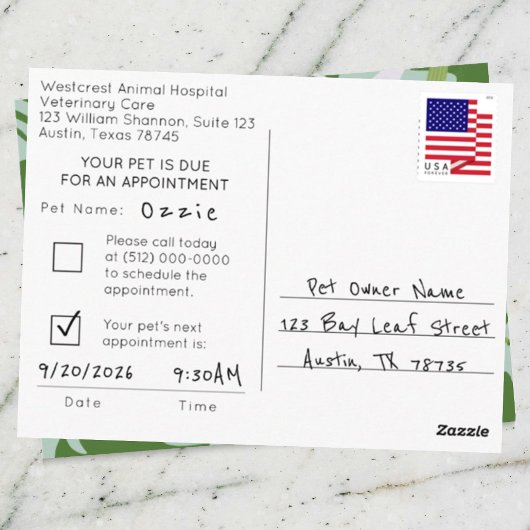 Westcrest Animal Hospital
Veterinary Care
123 William Shannon, Suite 123
Austin, Texas 78745
YOUR PET IS DUE
FOR AN APPOINTMENT
Pet Name: Ozzie
Please call today
at (512) 000-0000
to schedule the
appointment.
Your pet's next
appointment is:
9/20/2026 9:30AM
Date Time
USA
FOREVER
Pet Owner Name
123 Bay Leaf Street
Austin, TX 78735
Zazzle